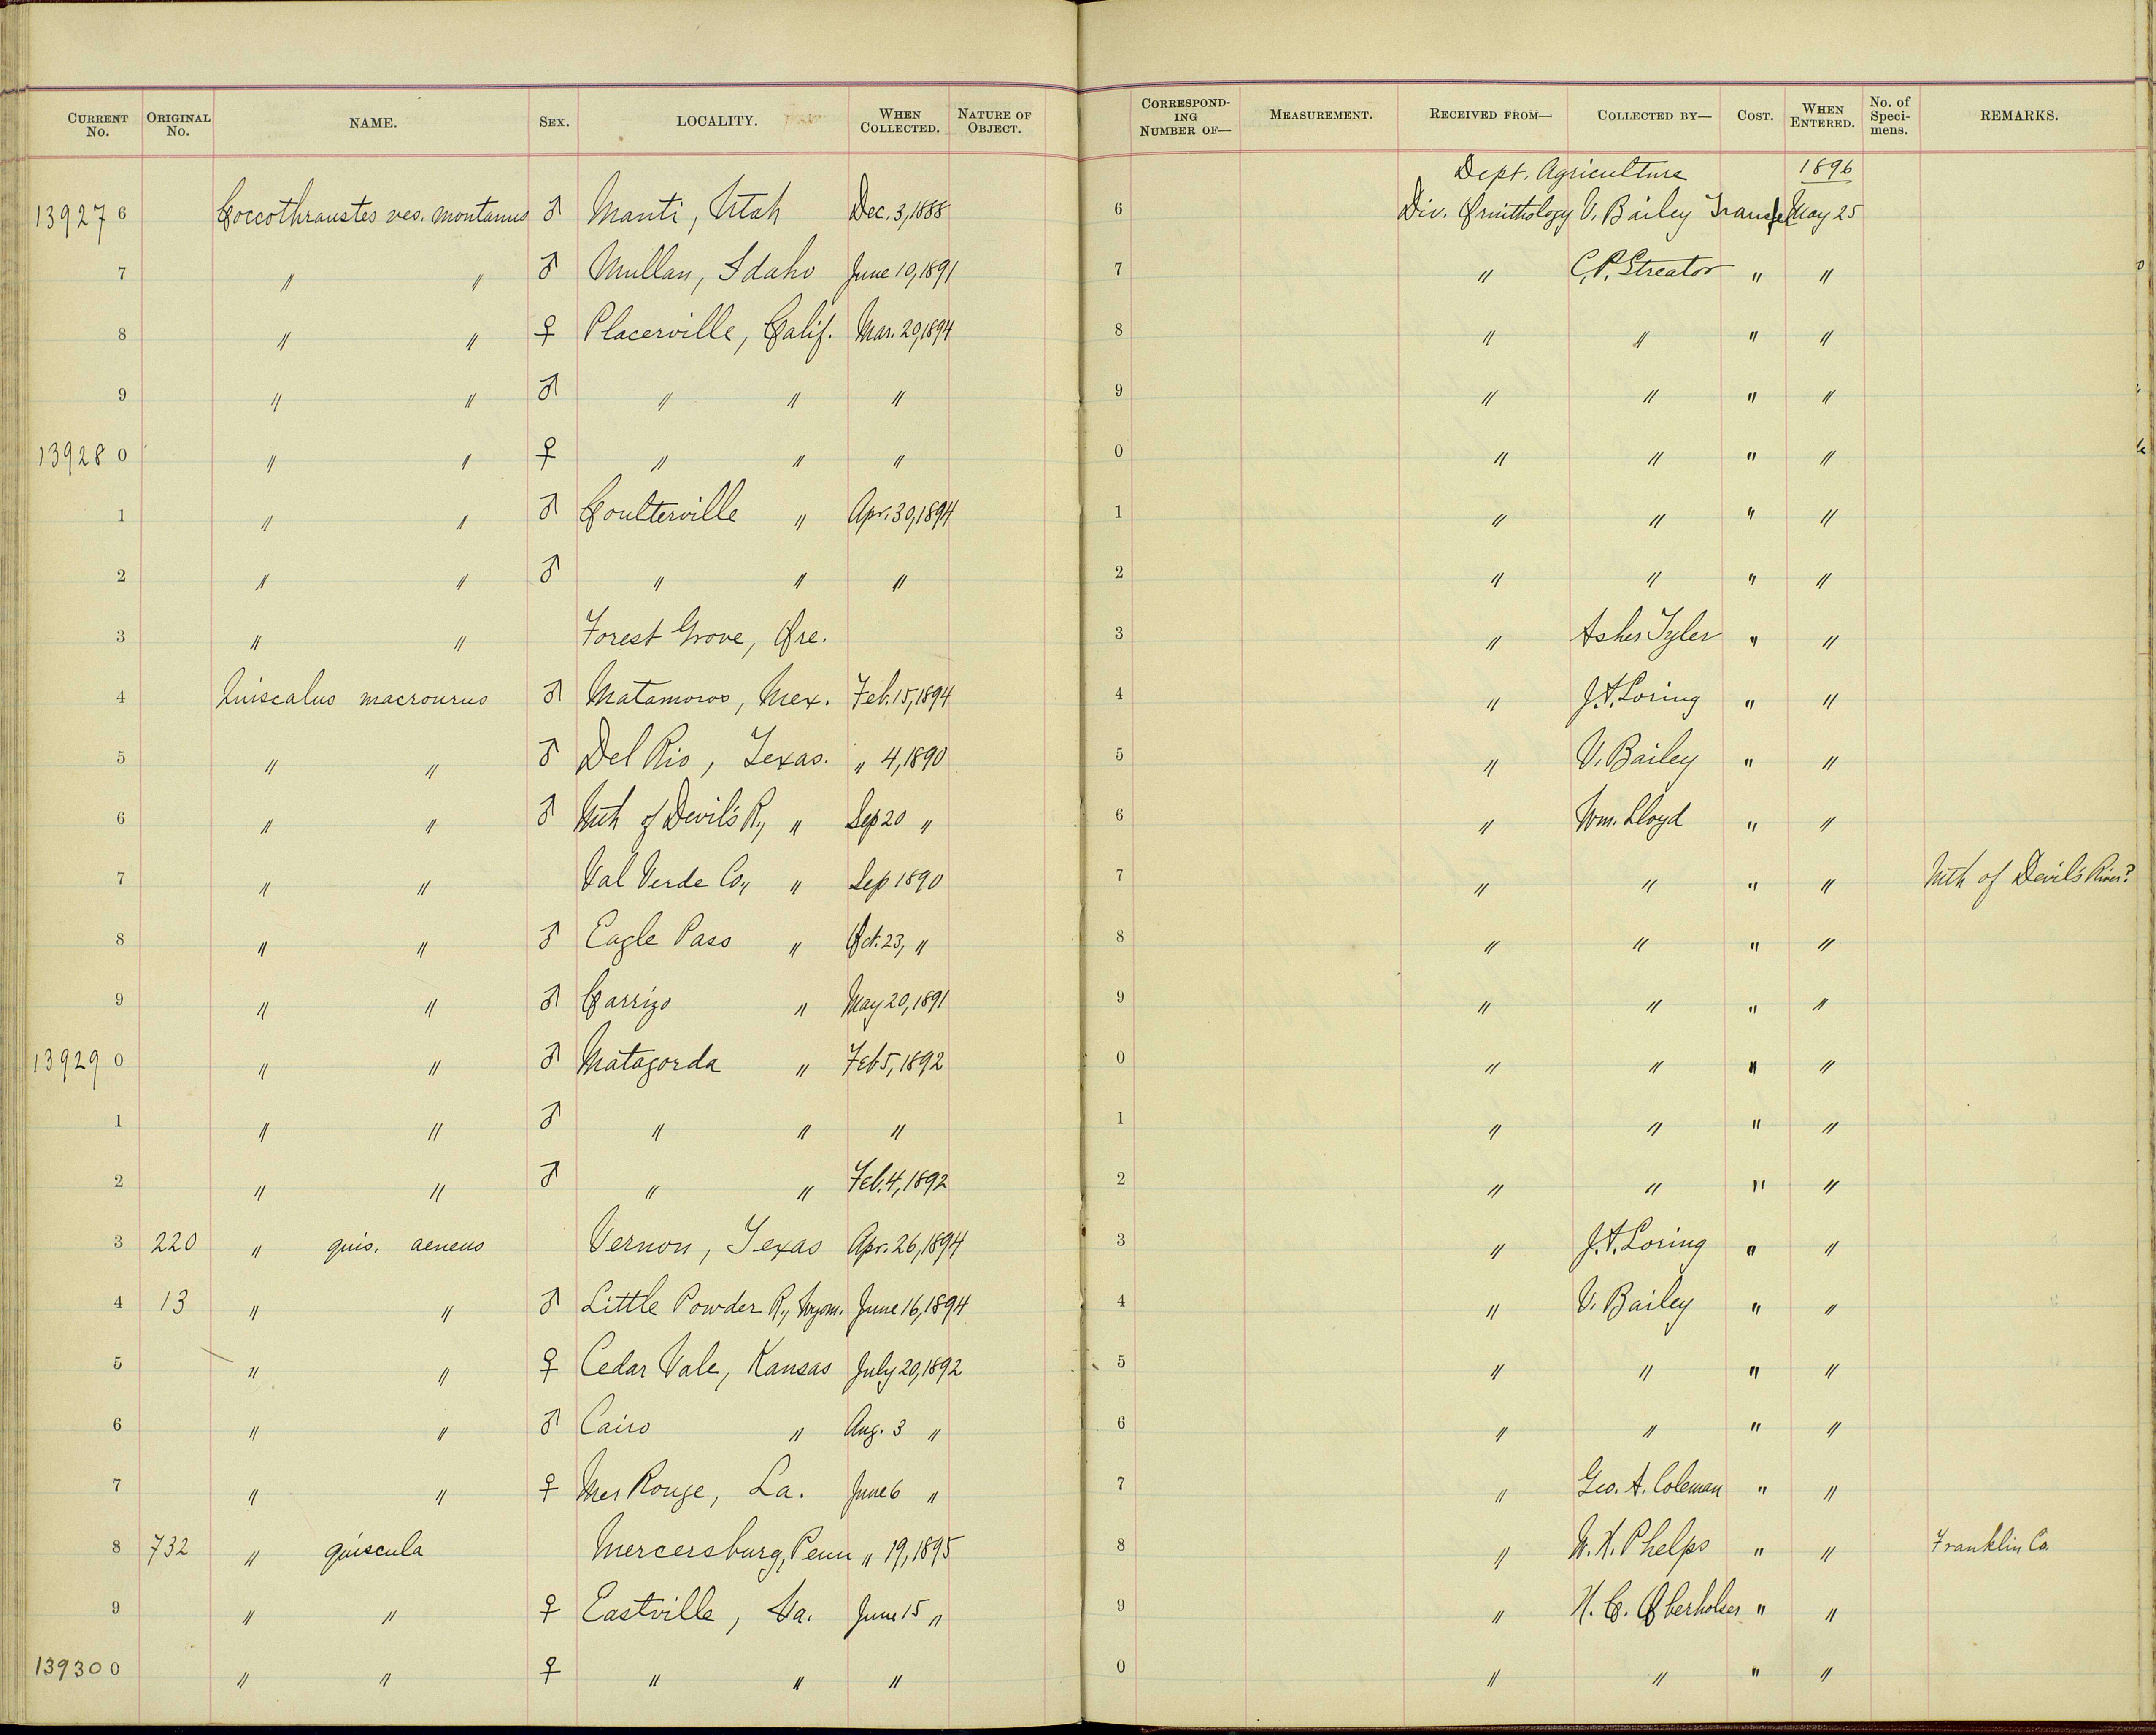 CURRENT No. ORIGINAL No. NAME. SEX. LOCALITY. WHEN COLLECTED. NATURE OF OBJECT. CORRESPONDING NUMBER OF— MEASUREMENT. RECEIVED FROM— COLLECTED BY— COST. WHEN ENTERED. No. of Specimens. REMARKS.
Dept. Agriculture 1896
13927 6 Coccothraustes ves. montanus ♂ Manti, Utah Dec. 3, 1888 6 Div. Ornithology V. Bailey Transfer May 25
7 " " ♂ Mullan, Idaho June 10, 1891 7 " C.P. Streator " "
8 " " ♀ Placerville, Calif. Mar. 20, 1894 8 " " " "
9 " " ♂ " " " 9 " " " "
13928 0 " " ♀ " " " 0 " " " "
1 " " ♂ Coulterville " Apr. 30, 1894 1 " " " "
2 " " ♂ " " " 2 " " " "
3 " " Forest Grove, Ore. 3 " Asher Tyler " "
4 Quiscalus macrourus ♂ Matamoros, Mex. Feb. 15, 1894 4 " J.A. Loring " "
5 " " ♂ Del Rio, Texas. " 4, 1890 5 " V. Bailey " "
6 " " ♂ Mth of Devil's R., " Sep 20 " 6 " Wm. Lloyd " "
7 " " Val Verde Co., " Sep 1890 7 " " " " Mth of Devil's River?
8 " " ♂ Eagle Pass " Oct. 23, " 8 " " " "
9 " " ♂ Carrizo " May 20, 1891 9 " " " "
13929 0 " " ♂ Matagorda " Feb 5, 1892 0 " " " "
1 " " ♂ " " " 1 " " " "
2 " " ♂ " " Feb. 4, 1892 2 " " " "
3 220 " quis. aeneus Vernon, Texas Apr. 26, 1894 3 " J.A. Loring " "
4 13 " " ♂ Little Powder R., Wyom. June 16, 1894 4 " V. Bailey " "
5 " " ♀ Cedar Vale, Kansas July 20, 1892 5 " " " "
6 " " ♂ Cairo " Aug. 3 " 6 " " " "
7 " " ♀ Mer Rouge, La. June 6 " 7 " Geo. A. Coleman " "
8 732 " quiscula Mercersburg, Penn " 19, 1895 8 " W.H. Phelps " " Franklin Co.
9 " " ♀ Eastville, Va. June 15 " 9 " H.C. Oberholser " "
13930 0 " " ♀ " " " 0 " " " "